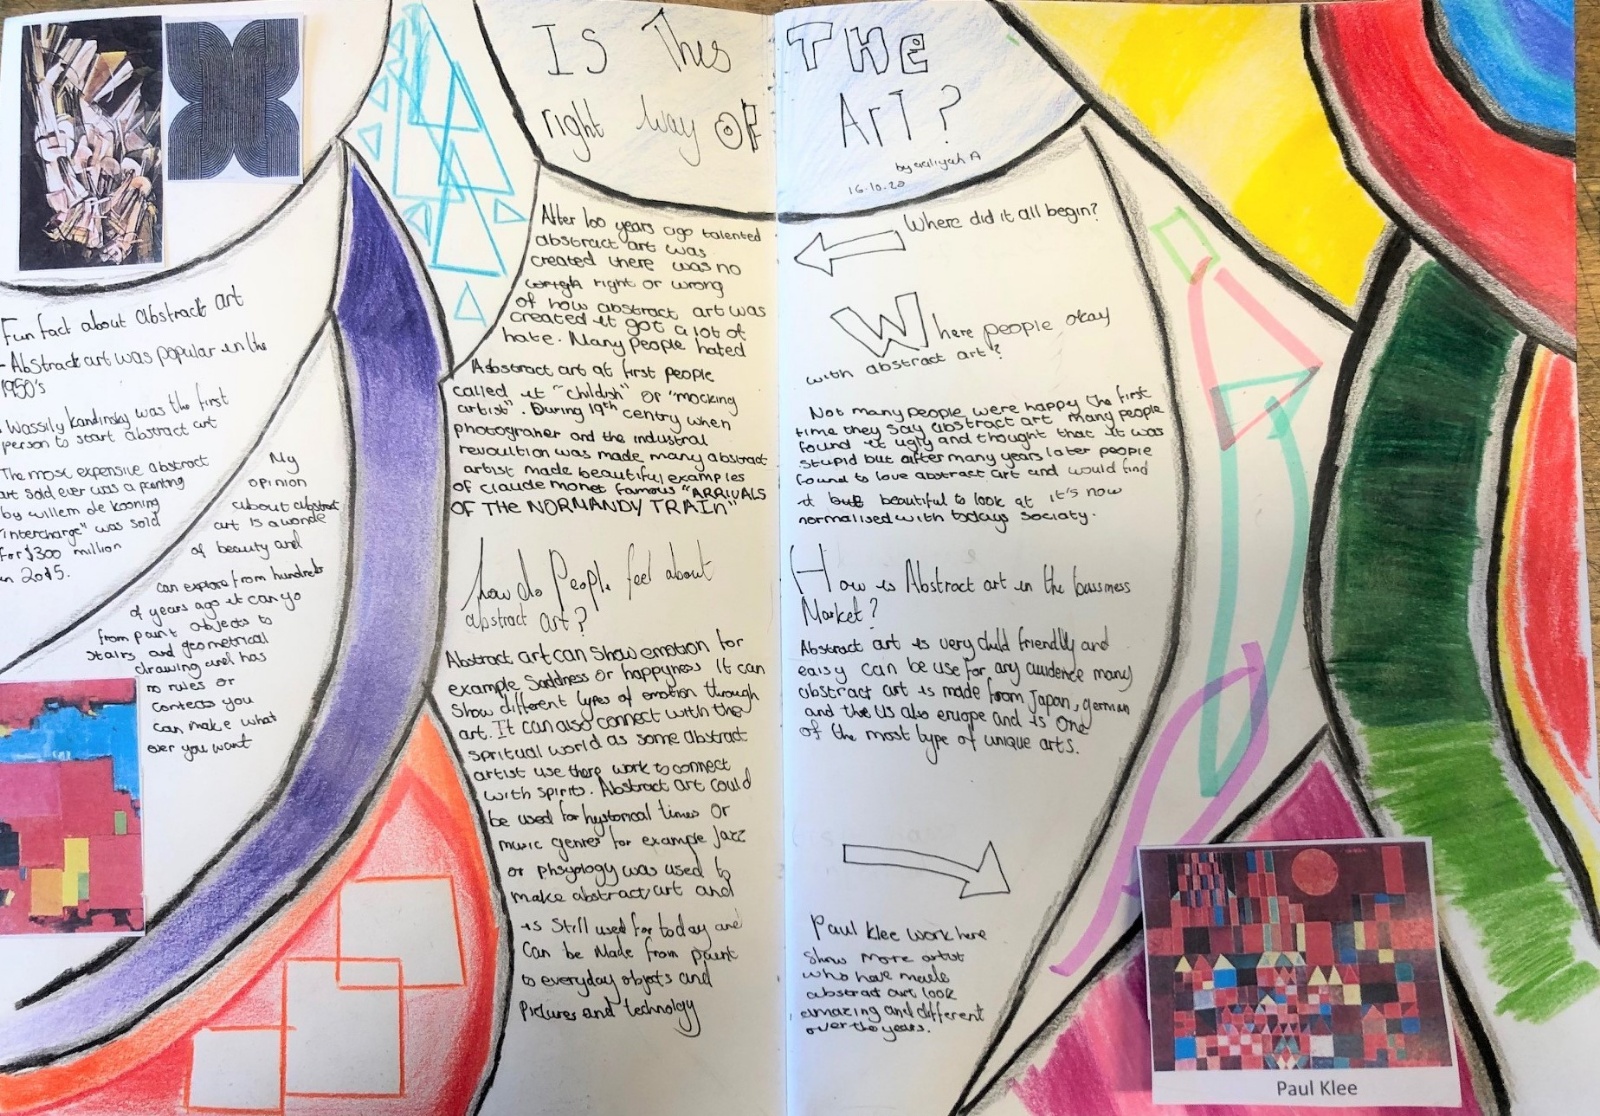 Is This THE
right way OF ArT?
by aaliyah A
16.10.20
Fun fact about abstract art
- Abstract art was popular in the
1950's
. Wassily Kandinsky was the first
person to start abstract art
The most expensive abstract
art sold ever was a painting
by willem de kooning
"intercharge" was sold
for $300 million
in 2015.
My
opinion
about abstract
art is a wonde
of beauty and
can explore from hundreds
of years ago it can go
from paint objects to
stairs and geometrical
drawing and has
no rules or
contexts you
can make what
ever you want
After 100 years ago talented
abstract art was
created there was no
right or wrong
of how abstract art was
created it got a lot of
hate. Many people hated
Absbract art at first people
called it "childish" or 'mocking
artist". During 19th centry when
photograher and the industrial
revoultion was made many abstract
artist made beautiful examples
of Claude monet famous "ARRIVALS
OF THE NORMANDY TRAIn"
how do People feel about
abstract art?
Abstract art can show emotion for
example Saddness or happyness it can
show different types of emotion through
art. It can also connect with the
spritual world as some abstract
artist use there work to connect
with spirits. Abstract art could
be used for hystorical times or
music genres for example Jazz
or phsyology was used to
make abstract art and
is still used for today and
can be made from paint
to everyday objects and
Pictures and technology
Where did it all begin?
Where people okay
with abstract art?
Not many people were happy the first
time they say abstract art many people
found it ugly and thought that it was
stupid but after many years later people
found to love abstract art and would find
it but beautiful to look at it's now
normalised with todays sociaty.
How is Abstract art in the bussiness
Market?
Abstract art is very child friendly and
eaisy can be use for any auidence many
abstract art is made from Japan, german
and the US also eruope and is One
of the most type of unique arts.
Paul klee work here
show more artist
who have made
abstract art look
amazing and different
over the years.
Paul Klee